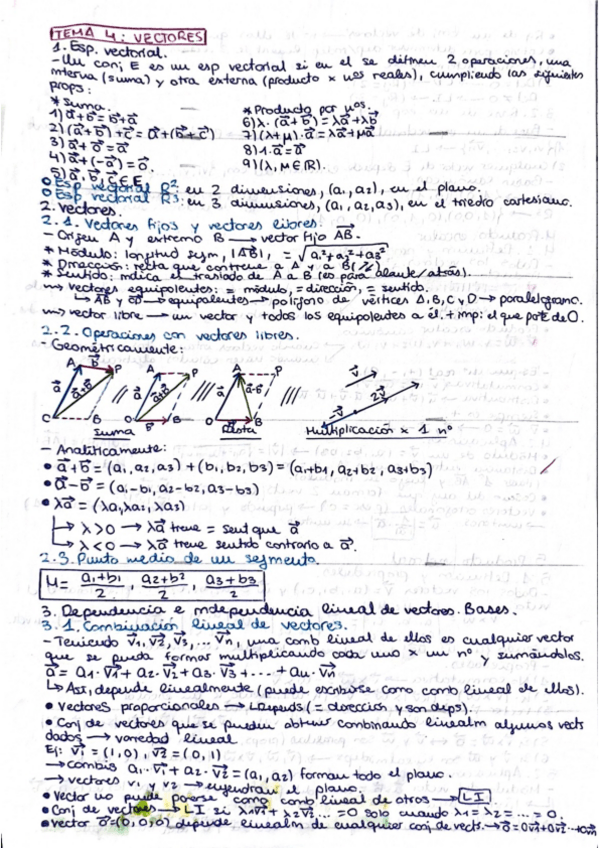 TEMA 4: VECTORES
1. Esp. vectorial.
- Un conj E es un esp vectorial si en el se definen 2 operaciones, una
interna (suma) y otra externa (producto x nos reales), cumpliendo las siguientes
props:
* Suma. * Producto por nos.
1) a⃗+b⃗ = b⃗+a⃗ 6) λ·(a⃗+b⃗) = λa⃗+λb⃗
2) (a⃗+b⃗)+c⃗ = a⃗+(b⃗+c⃗) 7) (λ+μ)·a⃗ = λa⃗+μa⃗
3) a⃗+0⃗ = a⃗ 8) 1·a⃗ = a⃗
4) a⃗+(-a⃗) = 0⃗. 9) (λ, μ∈ℝ).
5) a⃗, b⃗, c⃗ ∈ E
Esp vectorial R² en 2 dimensiones, (a1, a2), en el plano.
Esp vectorial R³: en 3 dimensiones, (a1, a2, a3), en el triedro cartesiano.
2. Vectores.
2.1. Vectores fijos y vectores libres.
- Origen A y extremo B → vector fijo AB⃗.
* Módulo: longitud segm, |AB⃗|, = √a1²+a2²+a3²
* Dirección: recta que contiene a A y a B (//)
* Sentido: indica el traslado de A a B (es para alante/atrás).
→ Vectores equipolentes: = módulo, = dirección, = sentido.
↳ AB⃗ y CD⃗ → equipolentes → polígono de vértices A, B, C y D → paralelogramo.
→ vector libre → un vector y todos los equipolentes a él, + imp: el que parte de O.
2.2. Operaciones con vectores libres.
- Geométricamente:
A b⃗ P A P A P
a⃗ a⃗ a+b a⃗ a-b v⃗ 2v⃗ -v⃗
O B O B O B
Suma Resta Multiplicación x 1 nº
- Analíticamente:
• a⃗+b⃗ = (a1, a2, a3) + (b1, b2, b3) = (a1+b1, a2+b2, a3+b3)
• a⃗-b⃗ = (a1-b1, a2-b2, a3-b3)
• λa⃗ = (λa1, λa2, λa3)
↳ λ>0 → λa⃗ tiene = sent que a⃗
↳ λ<0 → λa⃗ tiene sentido contrario a a⃗.
2.3. Punto medio de un segmento.
M = a1+b1/2, a2+b2/2, a3+b3/2
3. Dependencia e independencia lineal de vectores. Bases.
3.1. Combinación lineal de vectores.
- Teniendo v⃗1, v⃗2, v⃗3, ... v⃗n, una comb lineal de ellos es cualquier vector
que se pueda formar multiplicando cada uno x un nº y sumándolos.
a⃗ = a1·v⃗1 + a2·v⃗2 + a3·v⃗3 + ··· + an·v⃗n
↳ Así, depende linealmente (puede escribirse como comb lineal de ellos).
• Vectores proporcionales → L.depends (= dirección y son deps).
• Conj de vectores que se pueden obtener combinando linealm algunos vects
dados → variedad lineal
Ej: v⃗1 = (1,0) v⃗2 = (0,1)
→ combis a1·v⃗1 + a2·v⃗2 = (a1, a2) forman todo el plano.
→ vectores v1 y v2 → engendran el plano.
• Vector no puede ponerse como comb lineal de otros → LI
• Conj de vectores → LI si λ1v⃗1 + λ2v⃗2 ... = 0 solo cuando λ1 = λ2 = ... = 0.
• Vector 0⃗ = (0,0,0) depende linealm de cualquier conj de vects. → 0⃗ = 0v⃗1+0v⃗2···+0v⃗n